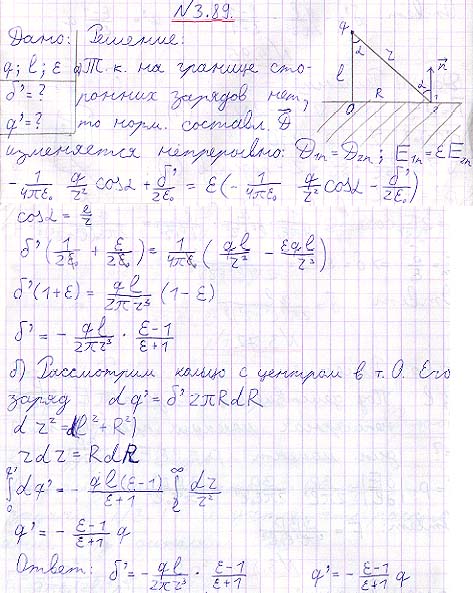 №3.89.
Дано: Решение:
q; l; ε а) Т. к. на границе сто-
б' = ? ронних зарядов нет,
q' = ? то норм. составл. D⃗
изменяется непрерывно: D₁ₙ = D₂ₙ ; E₁ₙ = εE₂ₙ
- 1/4πε₀ q/r² cosα + б'/2ε₀ = ε(- 1/4πε₀ q/r² cosα - б'/2ε₀)
cosα = l/r
б'(1/2ε₀ + ε/2ε₀) = 1/4πε₀ (ql/r³ - εql/r³)
б'(1+ε) = ql/2πr³ (1-ε)
б' = - ql/2πr³ · ε-1/ε+1
б) Рассмотрим кольцо с центром в т. O. Его
заряд dq' = б' 2πRdR
d r² = d(l² + R²)
rdr = RdR
∫₀^q' dq' = - ql(ε-1)/ε+1 ∫ₗ^∞ dr/r²
q' = - ε-1/ε+1 q
Ответ: б' = - ql/2πr³ · ε-1/ε+1 q' = - ε-1/ε+1 q
q
α
l
r
n⃗
α
R
O
1
2